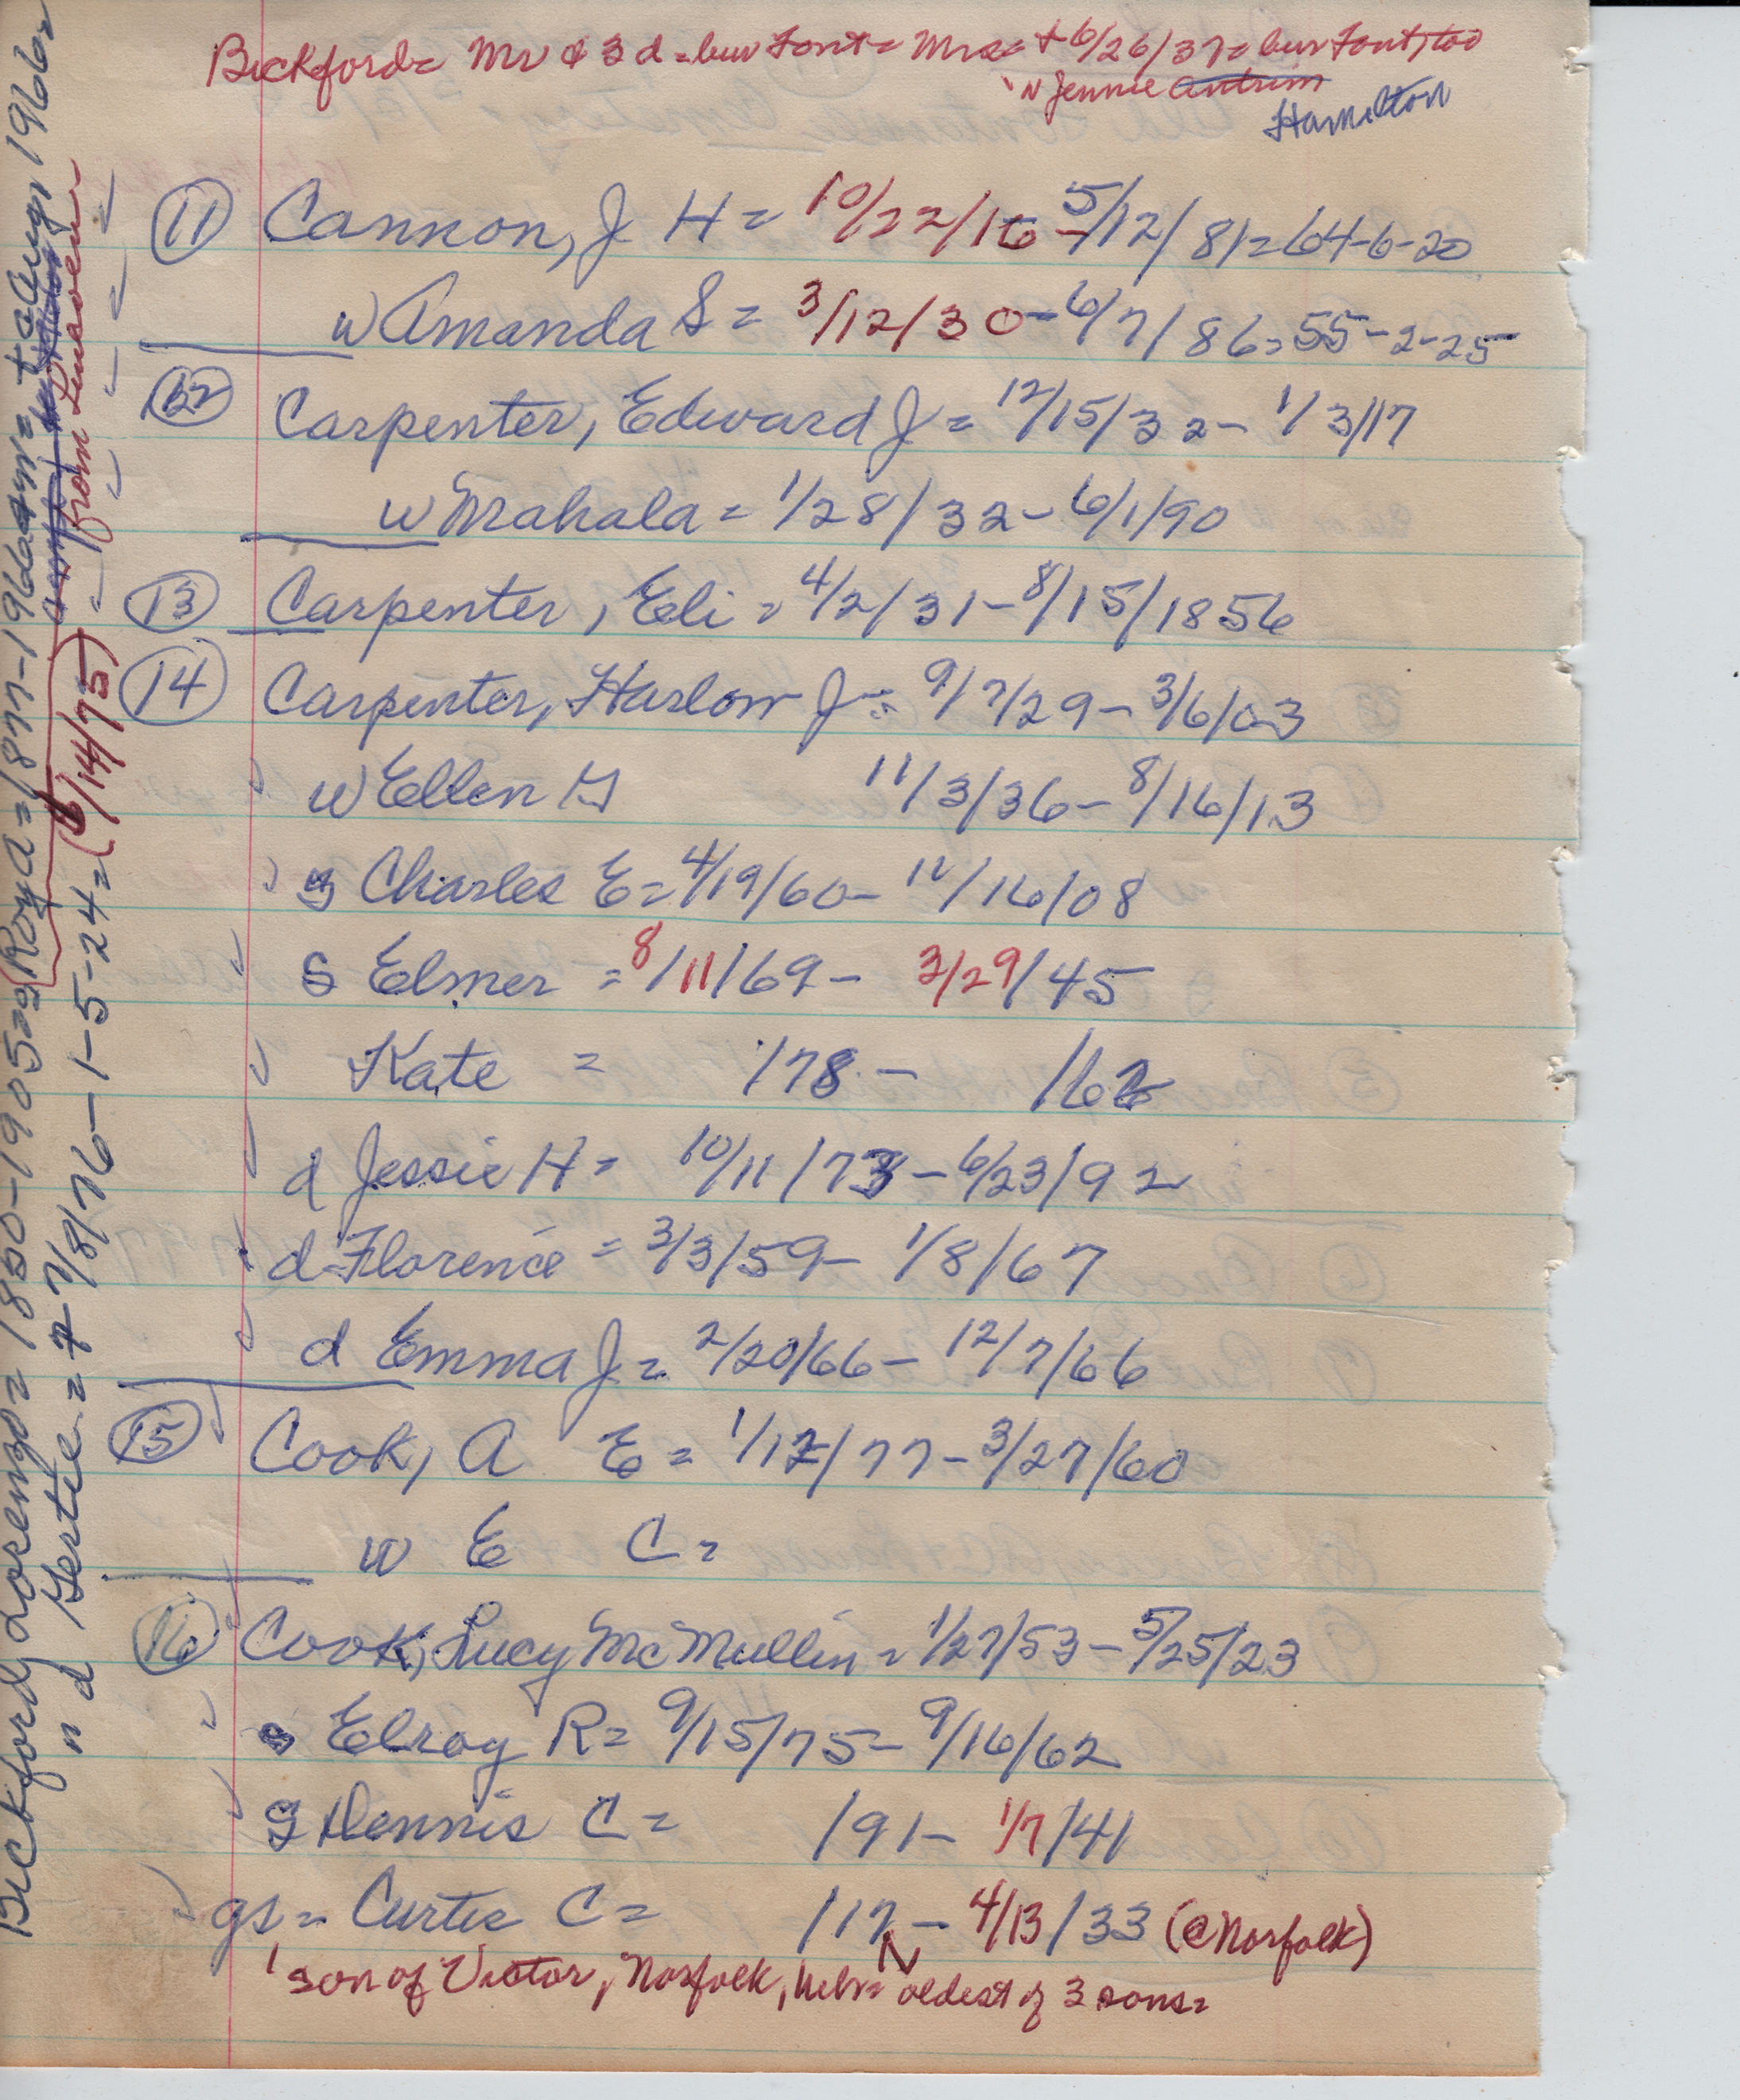 Bickford= Mr & 3 d = bur Font = Mrs = + 6/26/37 = bur Font, too
" Jennie Antrim
Hamilton
11 Cannon, J H = 10/22/16 - 5/12/81 = 64-6-20
w Amanda S = 3/12/30 - 6/7/86 = 55-2-25
12 Carpenter, Edward J = 12/15/32 - 1/3/17
w Mahala = 1/28/32 - 6/1/90
13 Carpenter, Eli = 4/2/31 - 8/15/1856
14 Carpenter, Harlow J = 9/7/29 - 3/6/03
w Ellen G 11/3/36 - 8/16/13
s Charles E = 4/19/60 - 11/16/08
s Elmer = 8/11/69 - 3/29/45
Kate = /78 - /62
d Jessie H = 10/11/73 - 6/23/92
d Florence = 3/3/59 - 1/8/67
d Emma J = 2/20/66 - 12/7/66
15 Cook, A E = 1/12/77 - 3/27/60
w E C =
16 Cook, Lucy McMullin = 1/27/53 - 5/25/23
s Elroy R = 9/15/75 - 9/16/62
s Dennis C = /91 - 1/7/41
gs = Curtis C = /17 - 4/13/33 (@ Norfolk)
' son of Victor, Norfolk, Nebr = oldest of 3 sons =
Bickford, Lorenzo = 1850-1905 = s Roy A = 1877-1966 = Aug 1966
from
" d Gertie = + 7/8/76 - 1-5-24 = (6/14/75)